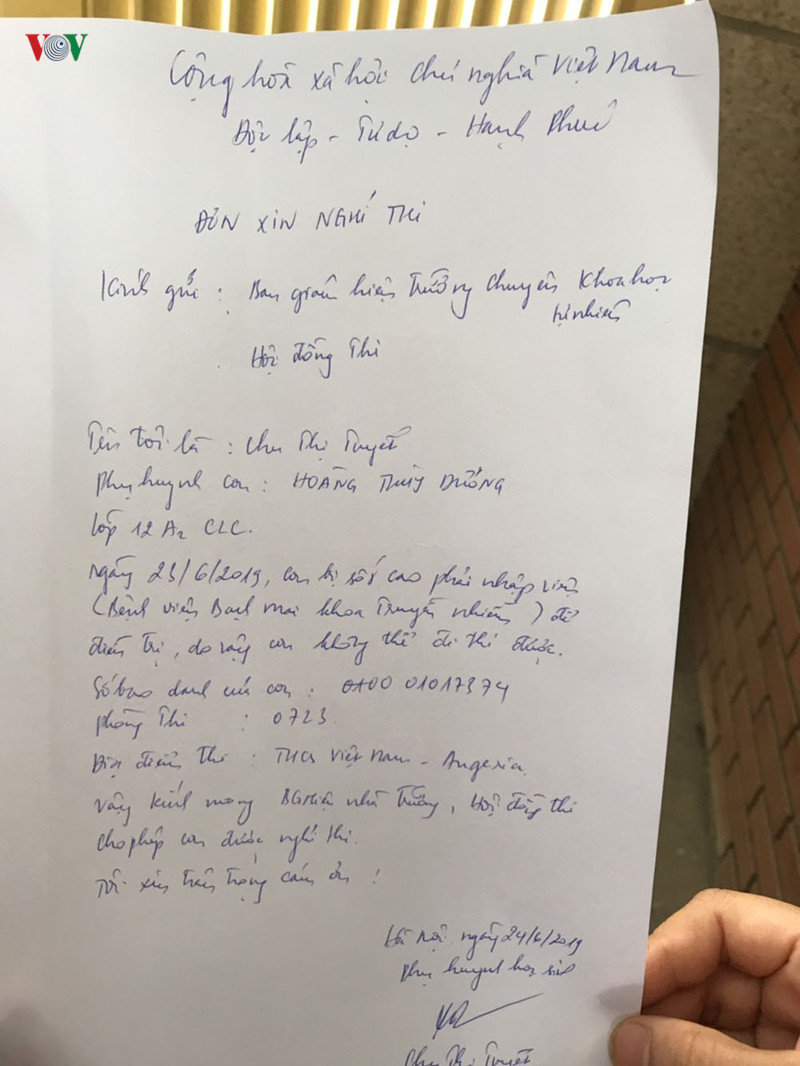 VOV
Cộng hoà xã hội chủ nghĩa Việt Nam
Độc lập - Tự do - Hạnh Phúc
ĐƠN XIN NGHỈ THI
Kính gửi : Ban giám hiệu Trường Chuyên Khoa học
tự nhiên
Hội đồng Thi
Tên tôi là : Chu Thị Tuyết
Phụ huynh con : HOÀNG THUỲ DƯƠNG
Lớp 12 A2 CLC.
Ngày 23/6/2019, con bị sốt cao phải nhập viện
(Bệnh viện Bạch mai khoa Truyền nhiễm) để
điều trị, do vậy con không thể đi thi được.
Số báo danh của con : 0100 01017374
Phòng Thi : 0723.
Địa điểm thi : THCS Việt Nam - Angeria.
Vậy kính mong BGHiệu nhà Trường, Hội đồng thi
cho phép con được nghỉ thi.
Tôi xin trân trọng cám ơn !
Hà Nội ngày 24/6/2019
Phụ huynh học sinh
Chu Thị Tuyết